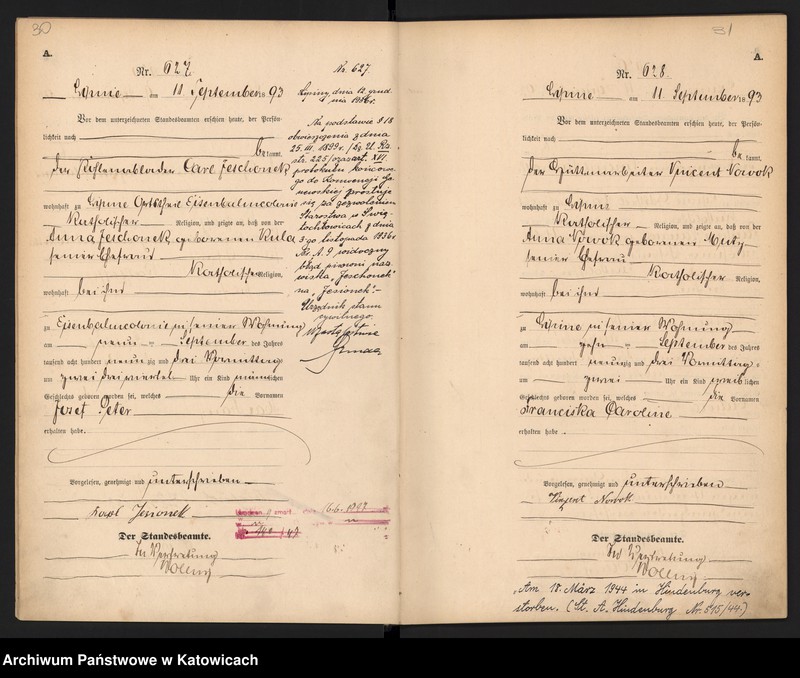 30
A.
Nr. 627.
Lipine am 11 September 1893
Vor dem unterzeichneten Standesbeamten erschien heute, der Persön-
lichkeit nach
be kannt,
der Carl Jeschonek
wohnhaft zu Lipine Ortstheil Eisenbahncolonie
Katholischer Religion, und zeigte an, daß von der
Anna Jeschonek, geborenen Kula
seiner Ehefrau
Katholischer Religion,
wohnhaft bei ihm
zu Eisenbahncolonie in seiner Wohnung
am neun ten September des Jahres
tausend acht hundert neunzig und drei Vormittags
um zwei dreiviertel Uhr ein Kind männlichen
Geschlechts geboren worden sei, welches die Vornamen
Josef Peter
erhalten habe.
Vorgelesen, genehmigt und unterschrieben
Karl Jesionek
Der Standesbeamte.
In Vertretung
Nr. 627.
Lipiny, dnia 12 grud
nia 1936 r.
Na podstawie § 18
obwieszczenia z dnia
25. III. 1899 r. / Dz. U. Rz.
str. 225 / oraz art. XVI.
protokułu końcowe-
go do Konwencji Ge
newskiej prostuje
się za zezwoleniem
Starostwa w Świę-
tochłowicach z dnia
3-go listopada 1936 r.
widoczny
błąd pisowni naz
wiska „Jeschonek"
na „Jesionek".-
Urzędnik stanu
cywilnego.
W zastępstwie
16.6.1947
31
A.
Nr. 628.
Lipine am 11. September 1893
Vor dem unterzeichneten Standesbeamten erschien heute, der Persön-
lichkeit nach
be kannt,
der Hüttenarbeiter Vincent Nowok
wohnhaft zu Lipine
Katholischer Religion, und zeigte an, daß von der
Anna Nowok geborenen
seiner Ehefrau
Katholischer Religion,
wohnhaft bei ihm
zu Lipine in seiner Wohnung
am zehn ten September des Jahres
tausend acht hundert neunzig und drei Vormittags
um zwei Uhr ein Kind weiblichen
Geschlechts geboren worden sei, welches die Vornamen
Franciska Caroline
erhalten habe.
Vorgelesen, genehmigt und unterschrieben
Vinzent Nowok
Der Standesbeamte.
In Vertretung
Am 18. März 1944 in Hindenburg ver-
storben. (St. A. Hindenburg Nr. 515/44.)
Archiwum Państwowe w Katowicach